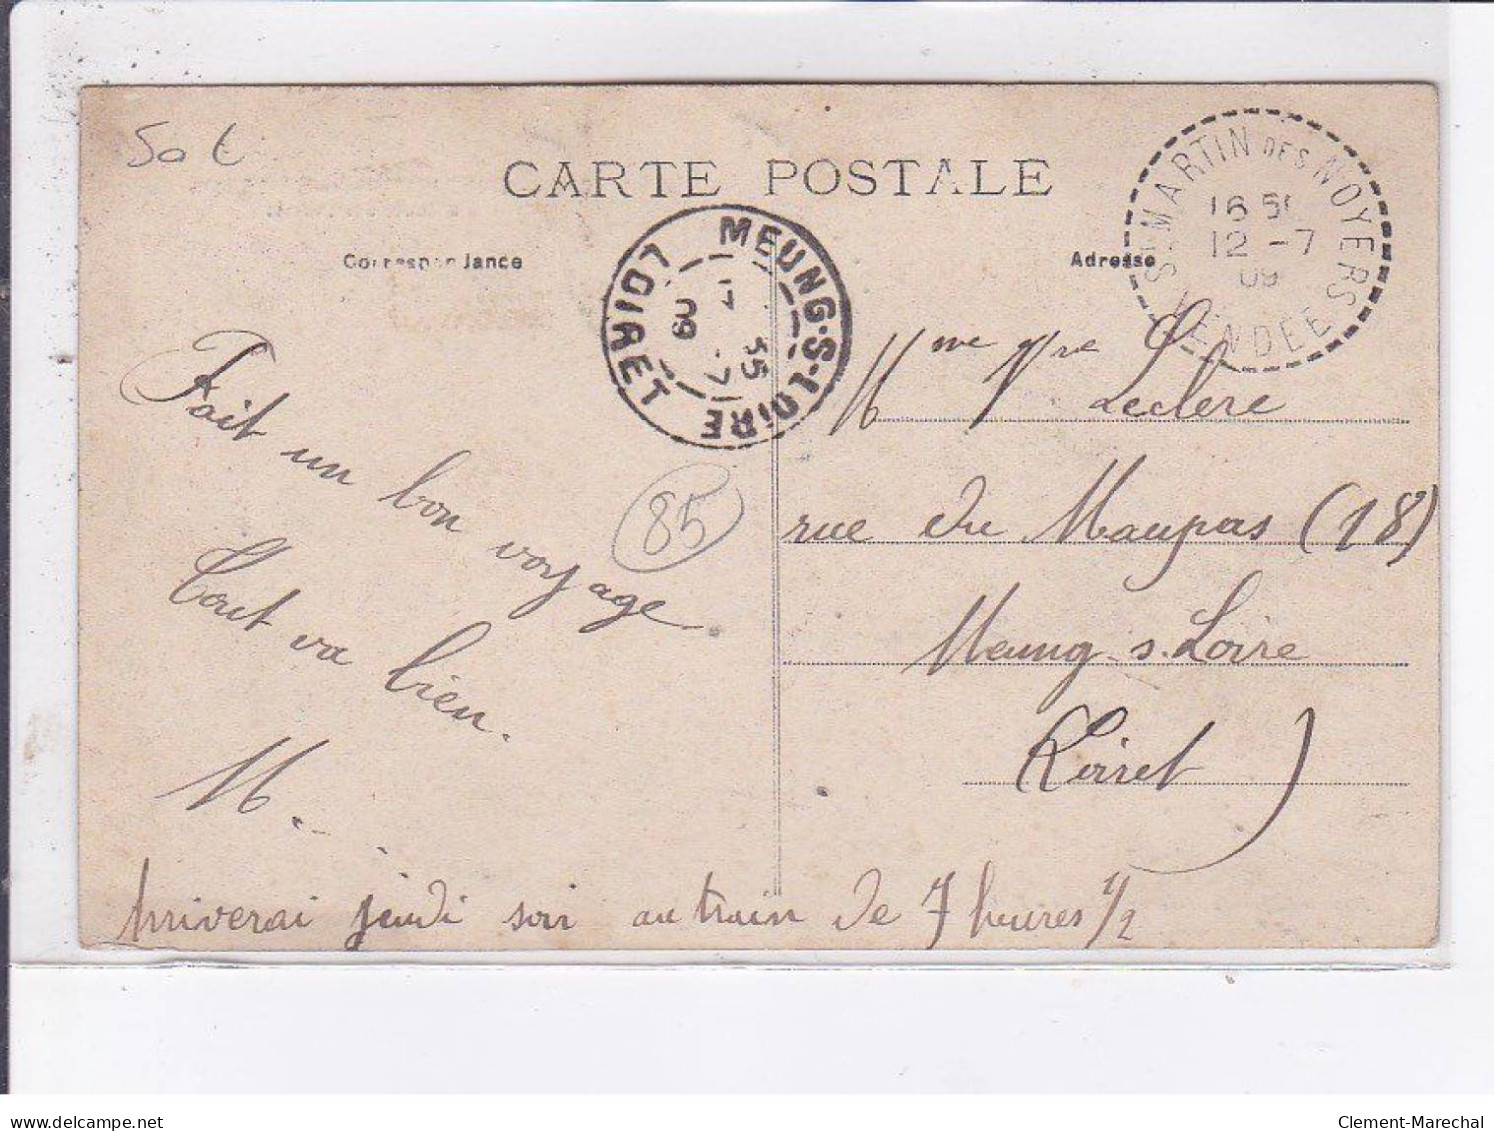 50 €
CARTE POSTALE
Correspondance
Adresse
ST MARTIN DES NOYERS
16 50
12 -7
09
VENDEE
MEUNG-S-LOIRE
LOIRET
7
09
Fait un bon voyage
Tout va bien.
M.
85
Mme Vve Leclere
rue du Maupas (18)
Meung s. Loire
(Loiret)
Arriverai jeudi soir au train de 7 heures 1/2
delcampe.net
Clement-Marechal